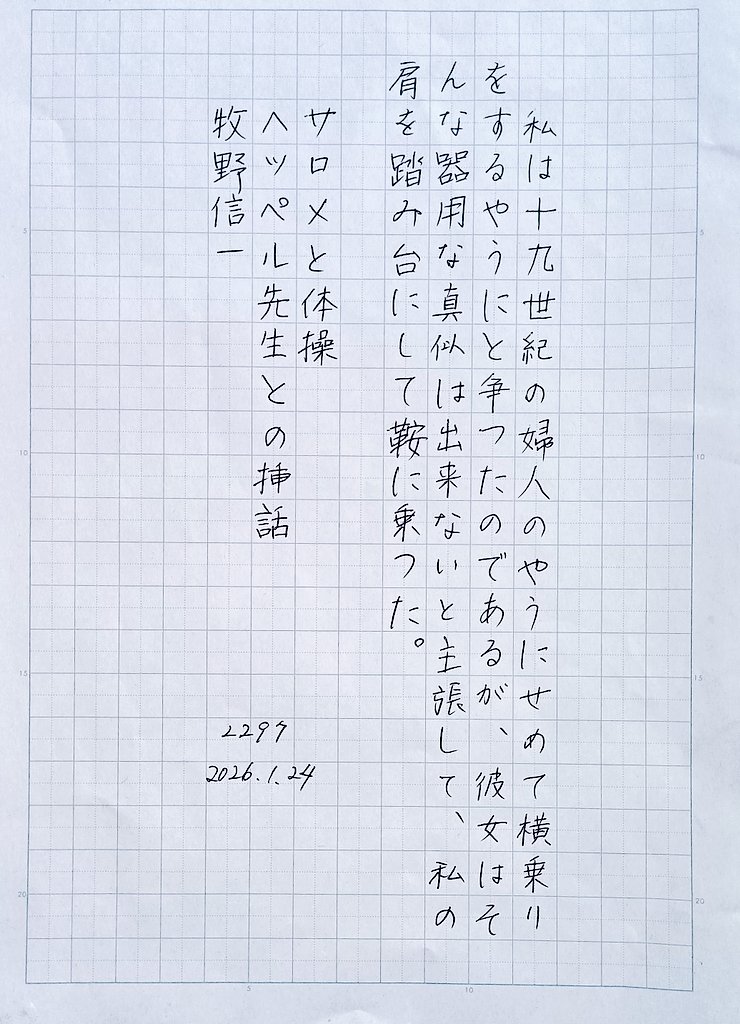 私は十九世紀の婦人のやうにせめて横乗り
をするやうにと争つたのであるが、彼女はそ
んな器用な真似は出来ないと主張して、私の
肩を踏み台にして鞍に乗つた。
サロメと体操
ヘッペル先生との挿話
牧野信一
2297
2026.1.24